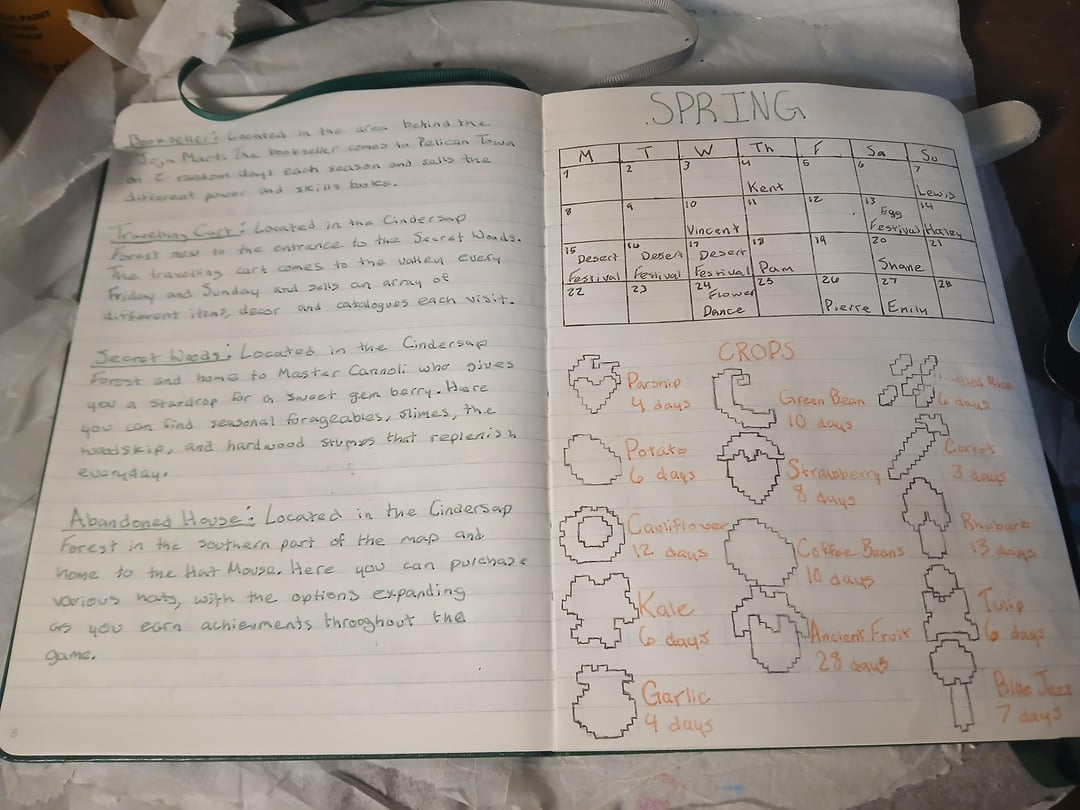 PAINT
Bookseller: Located in the area behind the
Joja Mart. The bookseller comes to Pelican Town
on 2 random days each season and sells the
different power and skills books.
Traveling Cart: Located in the Cindersap
Forest next to the entrance to the Secret Woods.
The traveling cart comes to the valley every
Friday and Sunday and sells an array of
different items, decor and catalogues each visit.
Secret Woods: Located in the Cindersap
Forest and home to Master Cannoli who gives
you a stardrop for a sweet gem berry. Here
you can find seasonal forageables, slimes, the
woodskip, and hardwood stumps that replenish
everyday.
Abandoned House: Located in the Cindersap
Forest in the southern part of the map and
home to the Hat Mouse. Here you can purchase
various hats, with the options expanding
as you earn achievments throoghout the
game.
6
SPRING
M T W Th F Sa Su
1 2 3 4 5 6 7
Kent Lewis
8 9 10 11 12 13 14
Vincent Egg Festival Haley
15 16 17 18 19 20 21
Desert Festival Desert Festival Desert Festival Pam Shane
22 23 24 25 26 27 28
Flower Dance Pierre Emily
CROPS
Parsnip
4 days
Green Bean
10 days
Rice
6 days
Potato
6 days
Strawberry
8 days
Carrot
3 days
Cauliflower
12 days
Coffee Beans
10 days
Rhubarb
13 days
Kale
6 days
Ancient Fruit
28 days
Tulip
6 days
Garlic
4 days
Blue Jazz
7 days